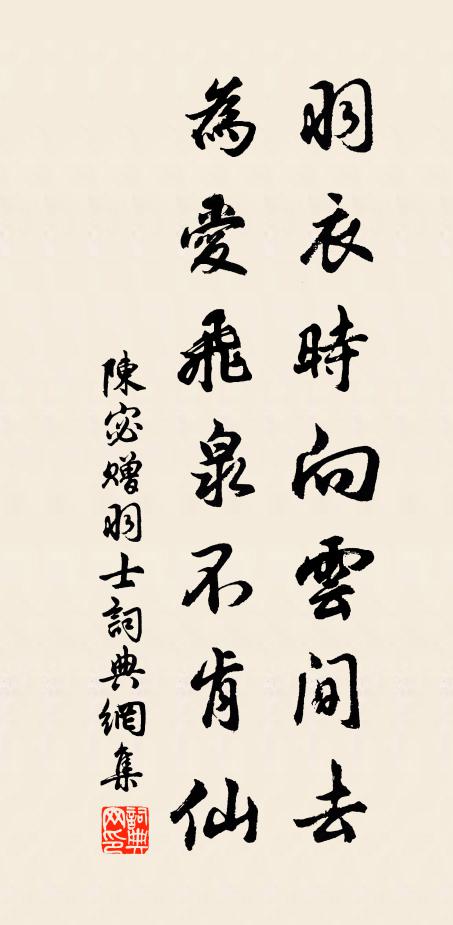 羽衣時向雲間去
為愛飛泉不肯仙
陳宓贈羽士詞典網集
詞典网印